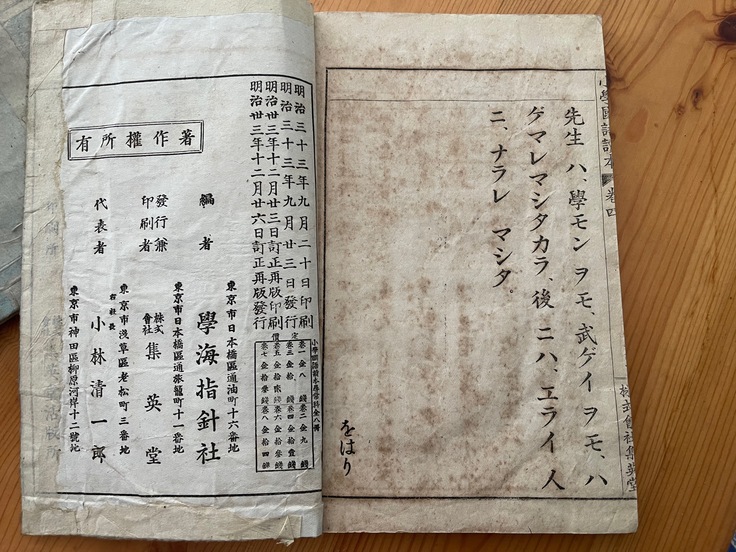 小學國語讀本 卷四
先生 ハ、學モン ヲモ、武ゲイ ヲモ、ハ
ゲマレマシタカラ、後 ニハ、エライ 人
ニ、ナラレ マシタ。
をはり
株式會社集英堂
明治三十三年九月二十日印刷
明治三十三年九月廿三日發行
明治卅三年十二月廿三日訂正再版印刷
明治卅三年十二月廿六日訂正再版發行
定價
小學國語讀本尋常科全八冊
卷一金八錢
卷二金九錢
卷三金拾錢
卷四金拾壹錢
卷五金拾貳錢
卷六金拾參錢
卷七金拾參錢
卷八金拾四錢
著作權所有
東京市日本橋區通油町十六番地
編者 學海指針社
東京市日本橋區通旅籠町十一番地
發行兼印刷者 株式會社 集英堂
東京市淺草區老松町三番地
代表者 右社長 小林清一郎
東京市神田區柳原河岸十二號地